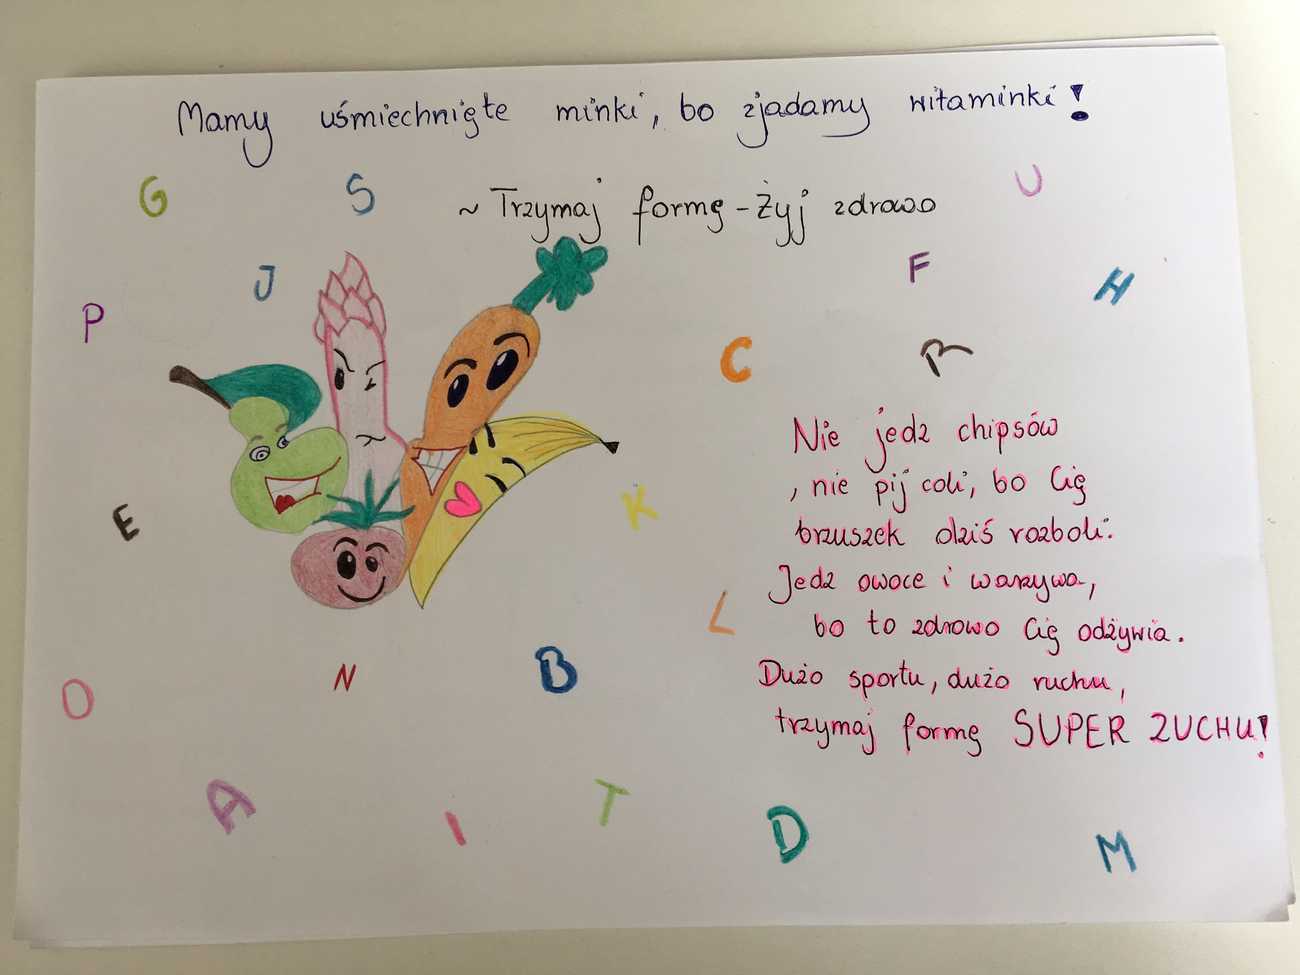 Mamy uśmiechnięte minki, bo zjadamy witaminki!
G S U
~ Trzymaj formę - Żyj zdrowo
J F H
P
C R
Nie jedz chipsów
, nie pij coli, bo Cię
E K
brzuszek dziś rozboli.
Jedz owoce i warzywa,
L
bo to zdrowo Cię odżywia.
O N B
Dużo sportu, dużo ruchu,
trzymaj formę SUPER ZUCHU!
A I T D M